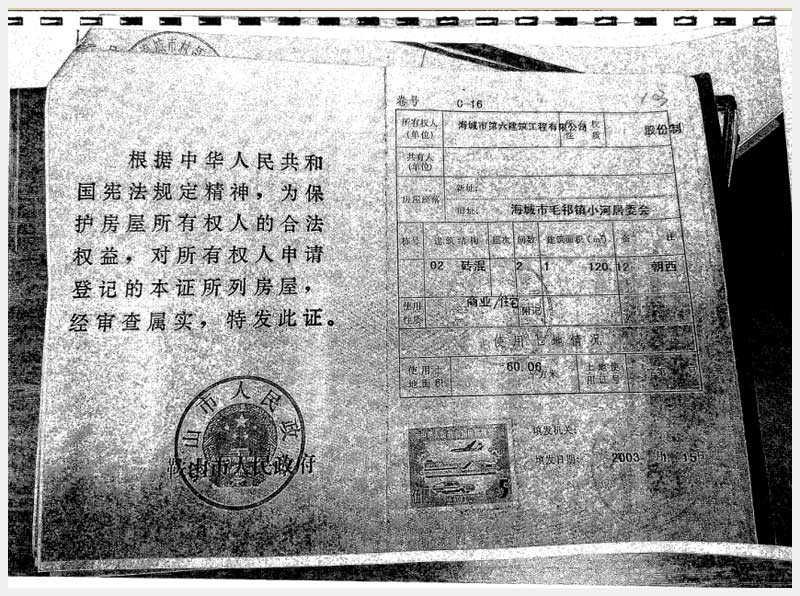 根据中华人民共和
国宪法规定精神，为保
护房屋所有权人的合法
权益，对所有权人申请
登记的本证所列房屋，
经审查属实，特发此证。
山市人民政
鞍山市人民政府
卷号 C-16 13
所有权人(单位) 海城市第六建筑工程有限公司 权 性质 股份制
共有人(单位)
房屋座落 新址:
旧址: 海城市毛祁镇小河居委会
栋号 建筑结构 层次 间数 建筑面积(m²) 备 注
02 砖混 2 1 120.12 朝西
使用性质 商业/住宅 附记
使用土地情况
使用土地面积 60.06 平方米 土地使用证号
填发机关:
填发日期: 2003 15
5